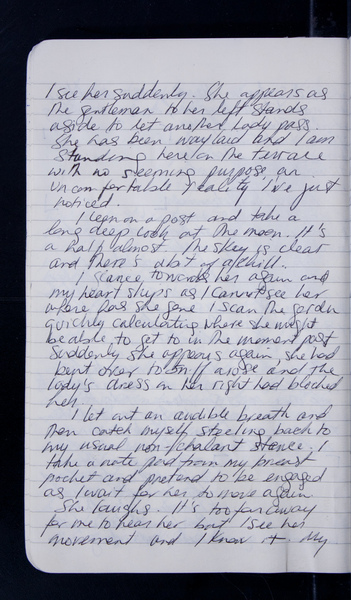 I see her suddenly. She appears as
the gentleman to her left stands
aside to let another lady pass.
She has been waylaid and I am
standing here on the terrace
with no seeming purpose an
uncomfortable reality I've just
noticed.
I lean on a post and take a
long deep look at the moon. It's
a half almost. The sky is clear
and there's a bit of a chill.
I glance towards her again and
my heart skips as I cannot see her
where has she gone I scan the garden
quickly calculating where she might
be able to get to in the moment past
Suddenly she appears again, she had
bent over to sniff a rose and the
lady's dress on her right had blocked
her.
I let out an audible breath and
then catch myself steeling back to
my usual non-chalant stance. I
take a note pad from my breast
pocket and pretend to be engaged
as I wait for her to move again
She laughs. It's too far away
for me to hear her but I see her
movement and I know it. My